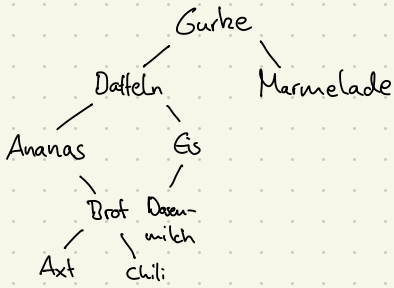 Gurke
Datteln
Marmelade
Ananas
Eis
Brot
Dosen-
milch
Axt
Chili